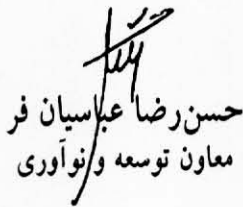 حسن‌رضا عباسیان فر
معاون توسعه و نوآوری